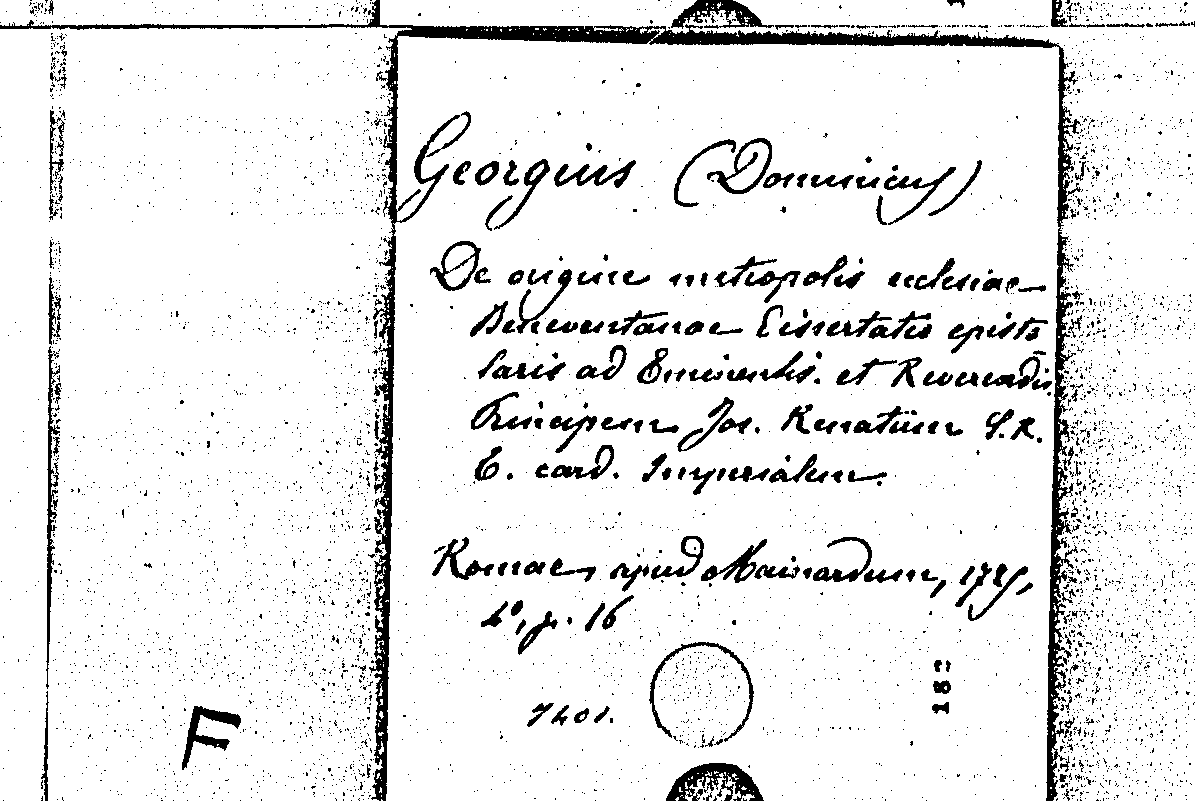 Georgius (Dominicus)
De origine metropolis ecclesiae
Beneventanae Dissertatio episto
laris ad Eminentis. et Reverendis.
Principem Jos. Renatum S. R.
E. card. Imperialem.
Romae, apud Mainardum, 1725,
4º, p. 16
7401.
182
F